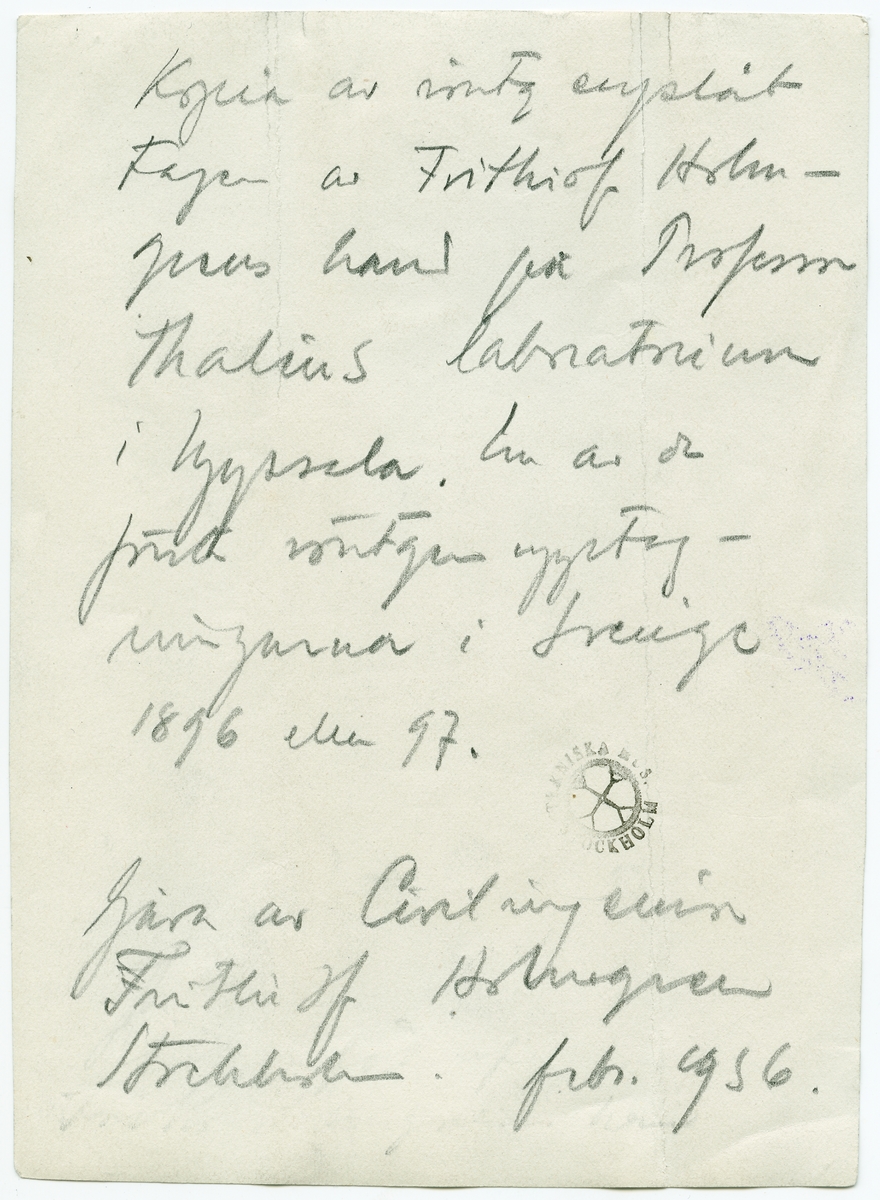 Kopia av röntgenplåt
tagen av Frithiof Holm-
grens hand på Professor
Thaléns laboratorium
i Uppsala. En av de
första röntgenupptag-
ningarna i Sverige
1896 eller 97.
TEKNISKA MUS.
STOCKHOLM
Gåva av Civilingeniör
Frithiof Holmgren
Stockholm. febr. 1956.